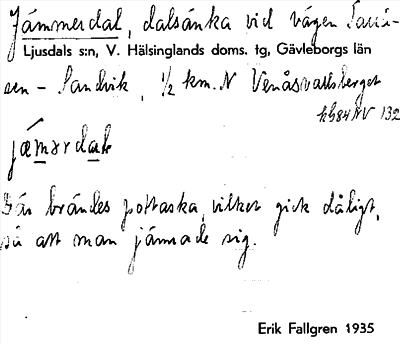 Jämmerdal, dalsänka vid vägen Tasså-
Ljusdals s:n, V. Hälsinglands doms. tg, Gävleborgs län
sen - Sandvik, ½ km. N Venåsvallsberget
hG84NV 132
jæmərdak
Där brändes pottaska, vilket gick dåligt,
så att man jämrade sig.
Erik Fallgren 1935